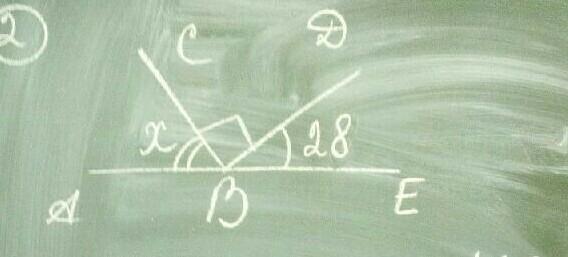 2
C D
x 28
A B E